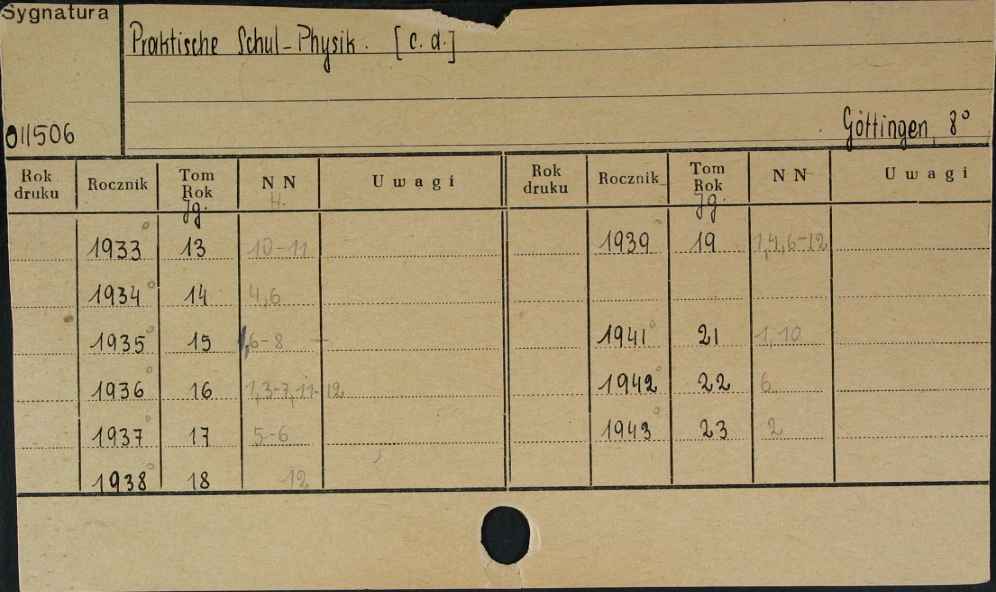 Sygnatura
Praktische Schul-Physik. [c.d.]
011506
Göttingen, 8°
Rok druku Rocznik Tom Rok Jg. NN H. Uwagi Rok druku Rocznik Tom Rok Jg. NN Uwagi
1933° 13 10-11 1939° 19 1,4,6-12
1934° 14 4,6
1935° 15 1,6-8 1941° 21 1,10
1936° 16 1,3-7,11-12 1942° 22 6
1937° 17 5-6 1943° 23 2
1938° 18 12